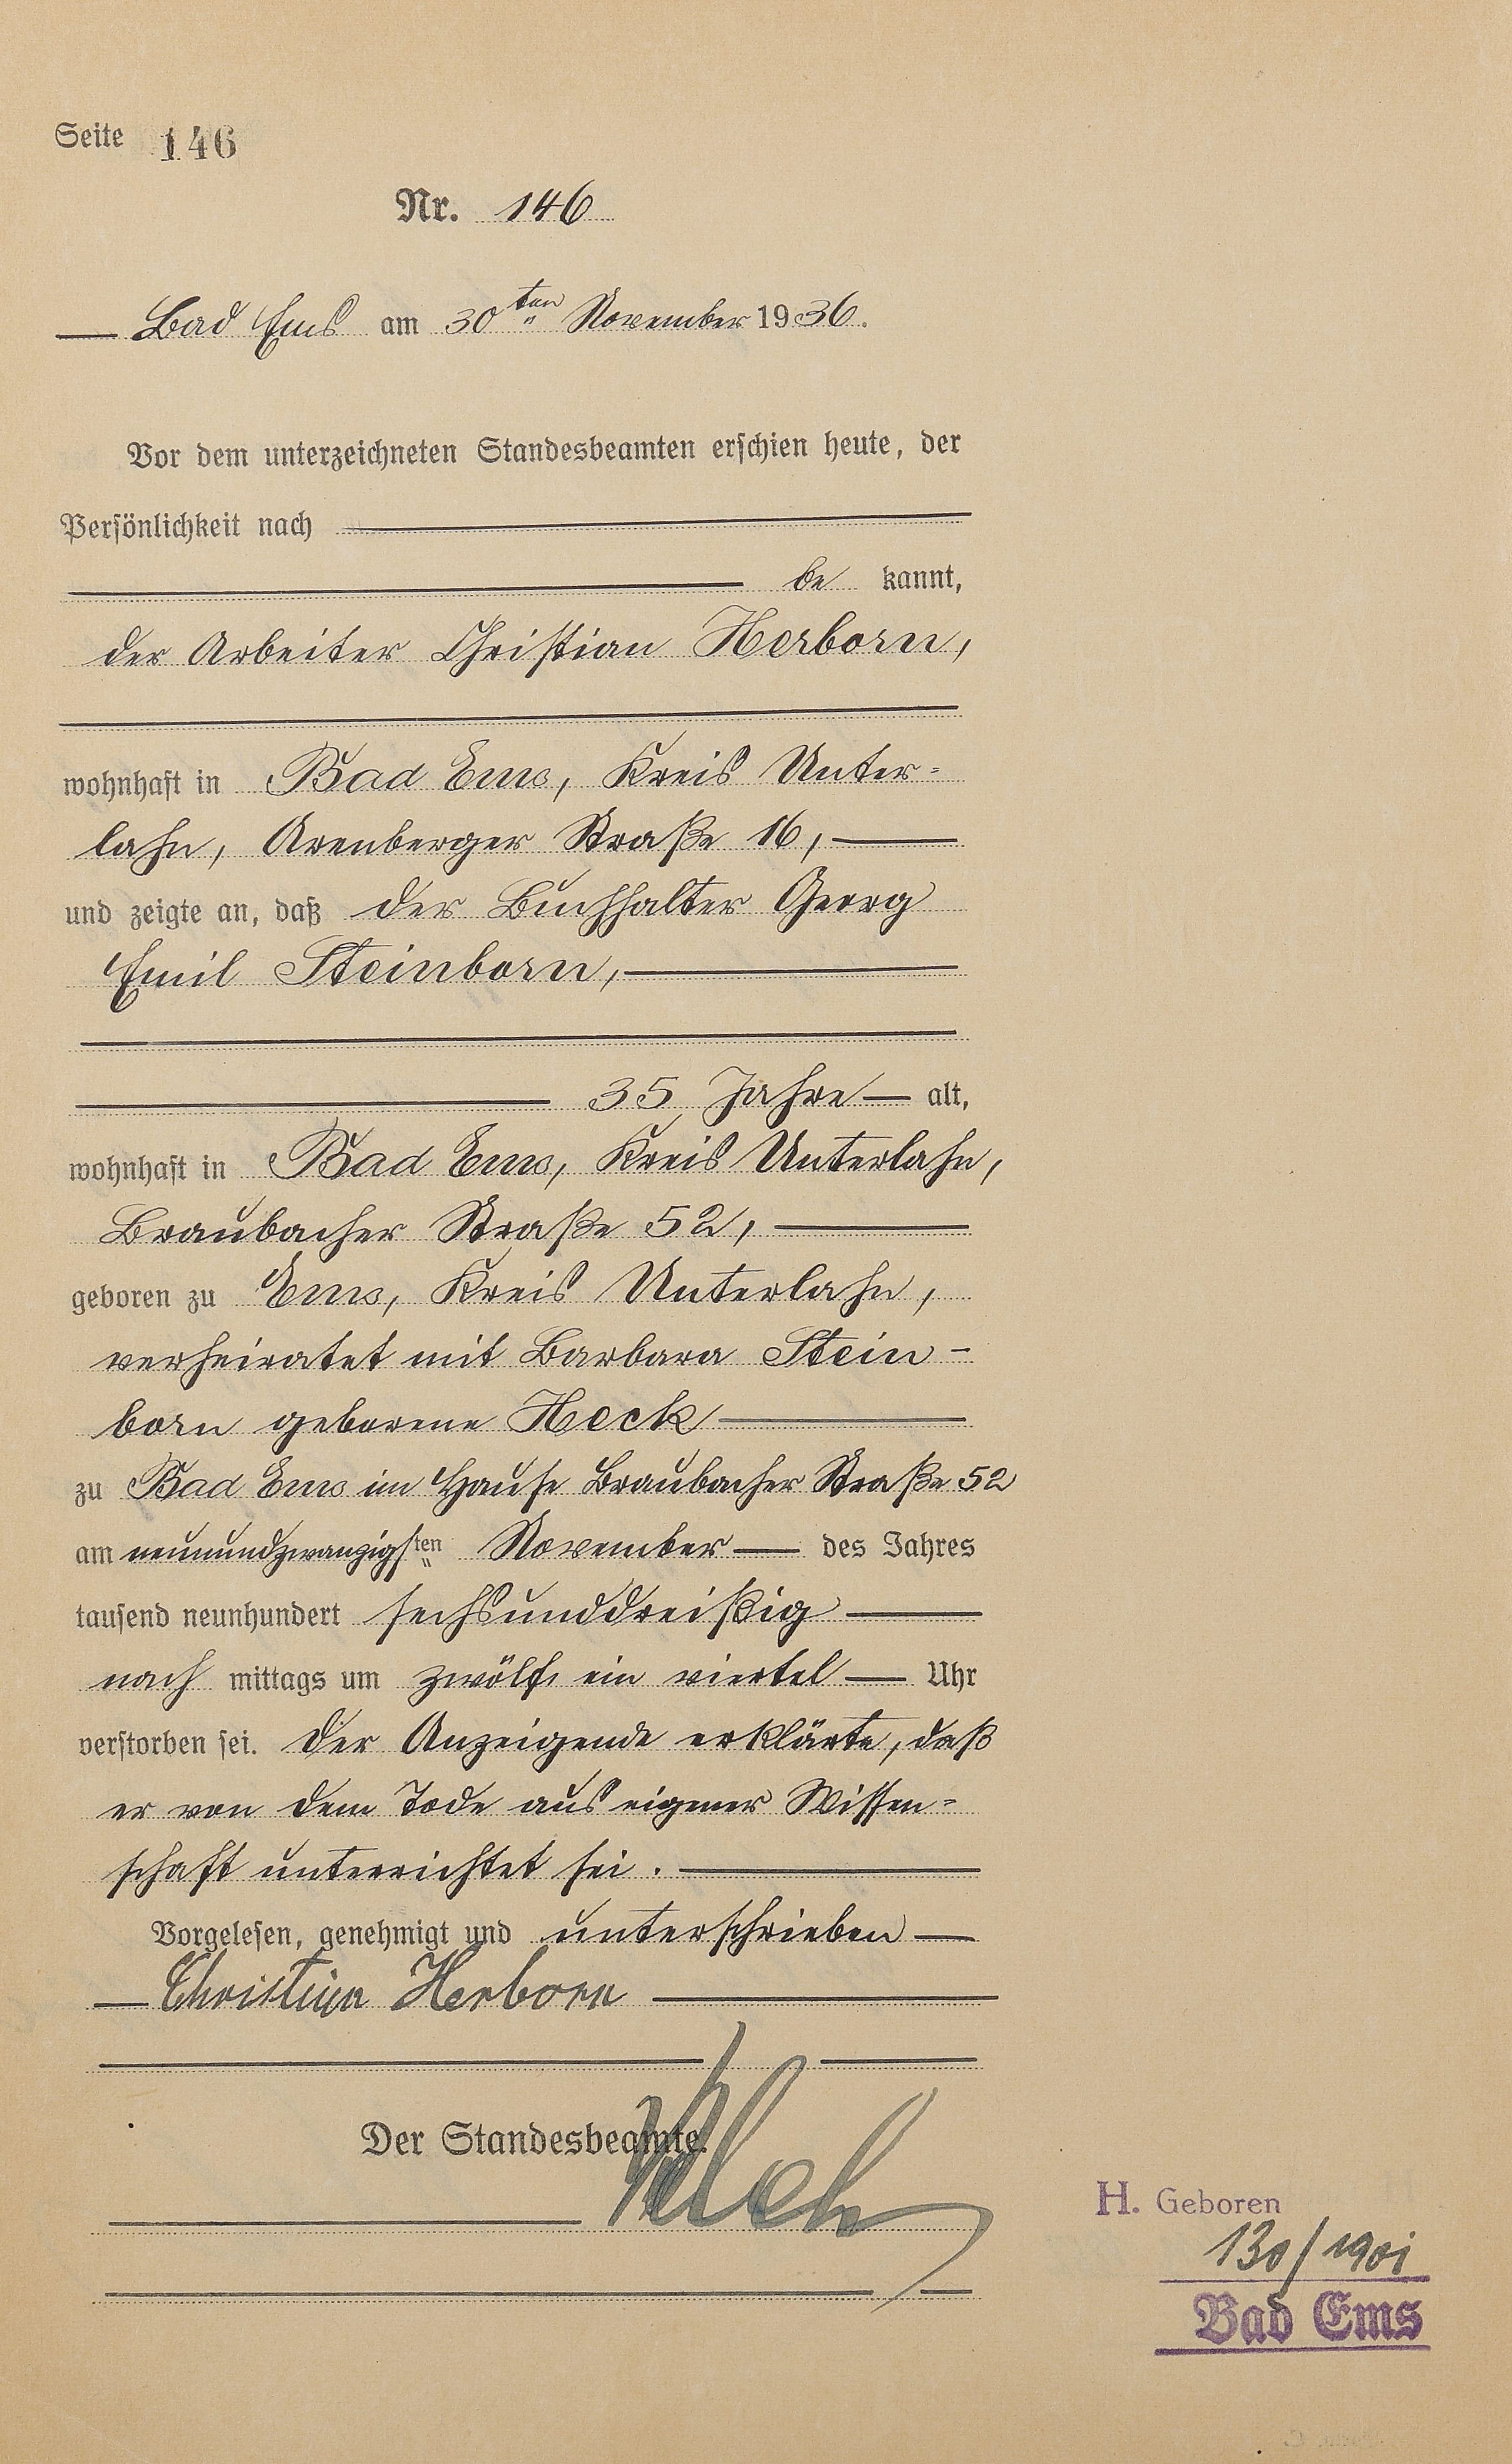 Seite 146
Nr. 146
Bad Ems am 30ten November 1936.
Vor dem unterzeichneten Standesbeamten erschien heute, der
Persönlichkeit nach
be kannt,
der Arbeiter Christian Herborn,
wohnhaft in Bad Ems, Kreis Unter=
lahn, Arenberger Straße 16,
und zeigte an, daß der Buchhalter Georg
Emil Steinborn,
35 Jahre alt,
wohnhaft in Bad Ems, Kreis Unterlahn,
Braubacher Straße 52,
geboren zu Ems, Kreis Unterlahn,
verheiratet mit Barbara Stein-
born geborene Heck
zu Bad Ems im Hause Braubacher Straße 52
am neunundzwanzigsten November des Jahres
tausend neunhundert sechsunddreißig
nach mittags um zwölf ein viertel Uhr
verstorben sei. Der Anzeigende erklärte, daß
er von dem Tode aus eigener Wissen=
schaft unterrichtet sei.
Vorgelesen, genehmigt und unterschrieben
Christian Herborn
Der Standesbeamte.
H. Geboren
130/1901
Bad Ems